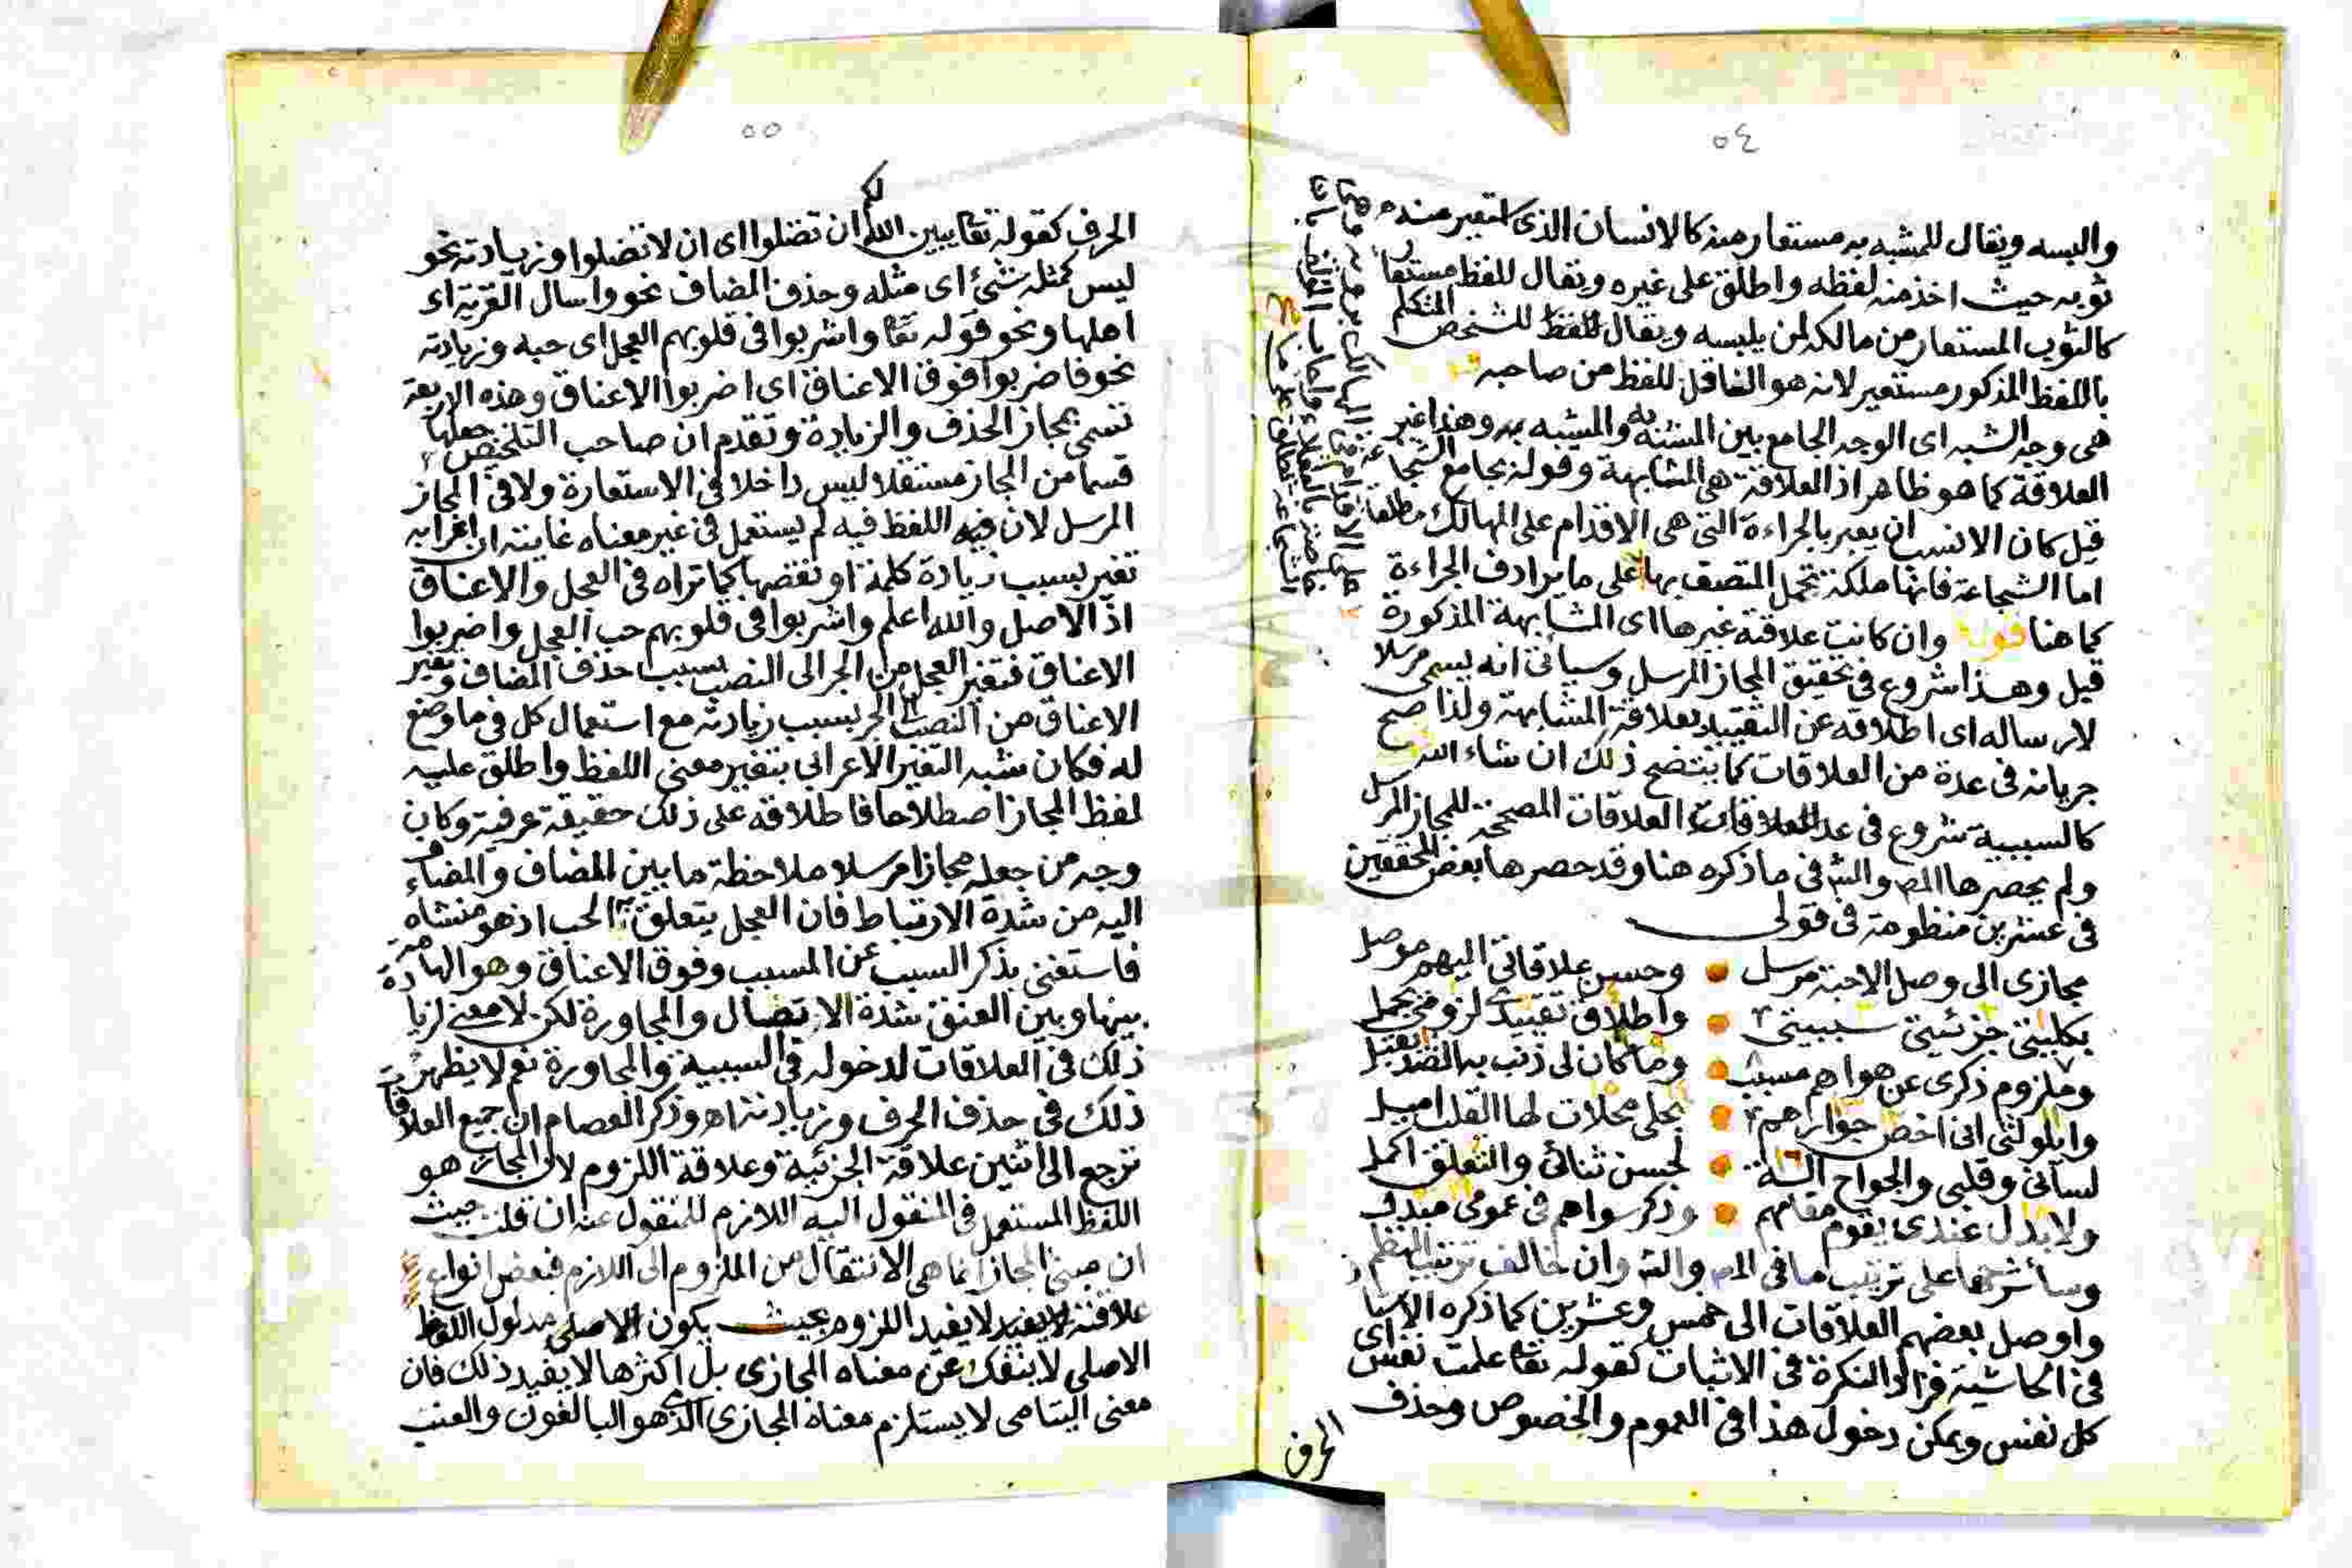 ٥٤
والبسه ويقال للمشبه به مستعار منه كالانسان الذى استعير منه
ثوبه حيث اخذ منه لفظه واطلق على غيره ويقال للفظ مستعار
كالثوب المستعار من مالكه لمن يلبسه ويقال للشخص المتكلم
باللفظ المذكور مستعير لانه هو الناقل للفظ من صاحبه
هى وجه الشبه اى الوجه الجامع بين المشبه والمشبه به وهذا غير
العلاقة كما هو ظاهر اذ العلاقة هى المشابهة وقوله بجامع الشجاعة
قيل كان الانسب ان يعبر بالجراءة التى هى الاقدام على المهالك مطلقا
اما الشجاعة فانها ملكة تحمل المتصف بها على ما يرادف الجراءة
كما هنا قوله وان كانت علاقته غيرها اى المشابهة المذكورة
قيل وهذا شروع فى تحقيق المجاز المرسل وسيأتى انه يسمى مرسلا
لارساله اى اطلاقه عن التقييد بعلاقة المشابهة ولذا صح
جريانه فى عدة من العلاقات كما يتضح ذلك ان شاء الله
كالسببية شروع فى عد العلاقات المصححة للمجاز المرسل
ولم يحصرها المص والش فى ما ذكره هنا وقد حصرها بعض المحققين
فى عشرين منظومة فى قولى
مجازى الى وصل الاحبة مرسل وحسن علاقاتى اليهم موصل
بكليتى جزئيتى سببيتى واطلاق تقييد لزومى يجمل
وملزوم ذكرى عن هواهم مسبب وما كان لى ذنب به الضد يقبل
وايلولتى انى اخص جوارهم بحلى محلات لها القلب اميل
لسانى وقلبى والجوارح آلة لحسن ثنائى والتعلق اكمل
ولا بدل عندى يقوم مقامهم وذكر سواهم فى عمومى مبدل
وسأشرحها على ترتيب ما فى المص والش وان خالف ترتيب النظم
واوصل بعضهم العلاقات الى خمس وعشرين كما ذكره
فى الحاشية فزاد النكرة فى الاثبات كقوله تعا علمت نفس اى
كل نفس ويمكن دخول هذا فى العموم والخصوص وحذف
الحرف
٥٥
الحرف كقوله تعا يبين الله لكم ان تضلوا اى ان لا تضلوا وزيادته نحو
ليس كمثله شئ اى مثله وحذف المضاف نحو واسال القرية اى
اهلها ونحو قوله تعا واشربوا فى قلوبهم العجل اى حبه وزيادته
نحو فاضربوا فوق الاعناق اى اضربوا الاعناق وهذه الاربعة
تسمى بمجاز الحذف والزيادة وتقدم ان صاحب التلخيص جعلها
قسما من المجاز مستقلا ليس داخلا فى الاستعارة ولا فى المجاز
المرسل لان اللفظ فيه لم يستعمل فى غير معناه غايته ان اعرابه
تغير بسبب زيادة كلمة او نقصها كما تراه فى العجل والاعناق
اذ الاصل والله اعلم واشربوا فى قلوبهم حب العجل واضربوا
الاعناق فتغير العجل من الجر الى النصب بسبب حذف المضاف وتغير
الاعناق من النصب الى الجر بسبب زيادته مع استعمال كل فى ما وضع
له فكان شبه التغير الاعرابى بتغير معنى اللفظ واطلق عليه
لفظ المجاز اصطلاحا فاطلاقه على ذلك حقيقة عرفية وكان
وجه من جعله مجازا مرسلا ملاحظة ما بين المضاف والمضاف
اليه من شدة الارتباط فان العجل يتعلق به الحب اذ هو منشاه
فاستغنى بذكر السبب عن المسبب وفوق الاعناق وهو الهامة
بينها وبين العنق شدة الاتصال والمجاورة لكن لا معنى لزيادة
ذلك فى العلاقات لدخوله فى السببية والمجاورة نعم لا يظهر
ذلك فى حذف الحرف وزيادته اه وذكر العصام ان جميع العلاقات
ترجع الى اثنين علاقة الجزئية وعلاقة اللزوم لان المجاز هو
اللفظ المستعمل فى المنقول اليه اللازم للمنقول عنه ان قلت حيث
ان مبنى المجاز انما هى الانتقال من الملزوم الى اللازم فبعض انواع
علاقته لا يفيد اللزوم بحيث يكون مدلول اللفظ
الاصلى لا ينفك عن معناه المجازى بل اكثرها لا يفيد ذلك فان
معنى اليتامى لا يستلزم معناه المجازى الذى هو البالغون والعنب